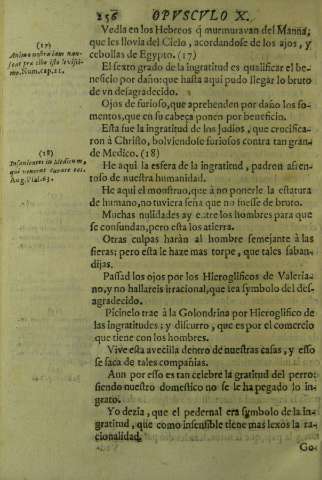 256 OPVSCVLO X.
Vedla en los Hebreos q̃ murmuravan del Manná;
que les llovia del Cielo, acordandose de los ajos, y
cebollas de Egypto. (17)
(17)
Anima nostra iam nauseat
super cibo isto levissimo.
Num. cap. 21.
El sexto grado de la ingratitud es qualificar el beneficio
por daño: que hasta aqui pudo llegar lo bruto
de vn desagradecido.
Ojos de furioso, que aprehenden por daño los fomentos,
que en su cabeça ponen por beneficio.
Esta fue la ingratitud de los Judios, que crucificaron
à Christo, bolviendole furiosos contra tan grande
Medico. (18)
(18)
Insanientes in Medicum,
qui venerat curare eos.
Aug.
He aqui la esfera de la ingratitud, padron afrentoso
de nuestra humanidad.
He aqui el monstruo, que à no ponerle la estatura
de humano, no tuviera seña que no fuesse de bruto.
Muchas nulidades ay entre los hombres para que
se confundan, pero esta los atierra.
Otras culpas haràn al hombre semejante à las
fieras; pero esta le haze mas torpe, que tales sabandijas.
Passad los ojos por los Hieroglificos de Valeriano,
y no hallareis irracional, que sea symbolo del desagradecido.
Picinelo trae à la Golondrina por Hieroglifico de
las ingratitudes; y discurro, que es por el comercio
que tiene con los hombres.
Vive esta avecilla dentro de nuestras casas, y esso
se saca de tales compañias.
Aun por esso es tan celebre la gratitud del perro:
siendo nuestro domestico no se le ha pegado lo ingrato.
Yo dezia, que el pedernal era symbolo de la ingratitud,
que como insensible tiene mas lexos la racionalidad.
Go-